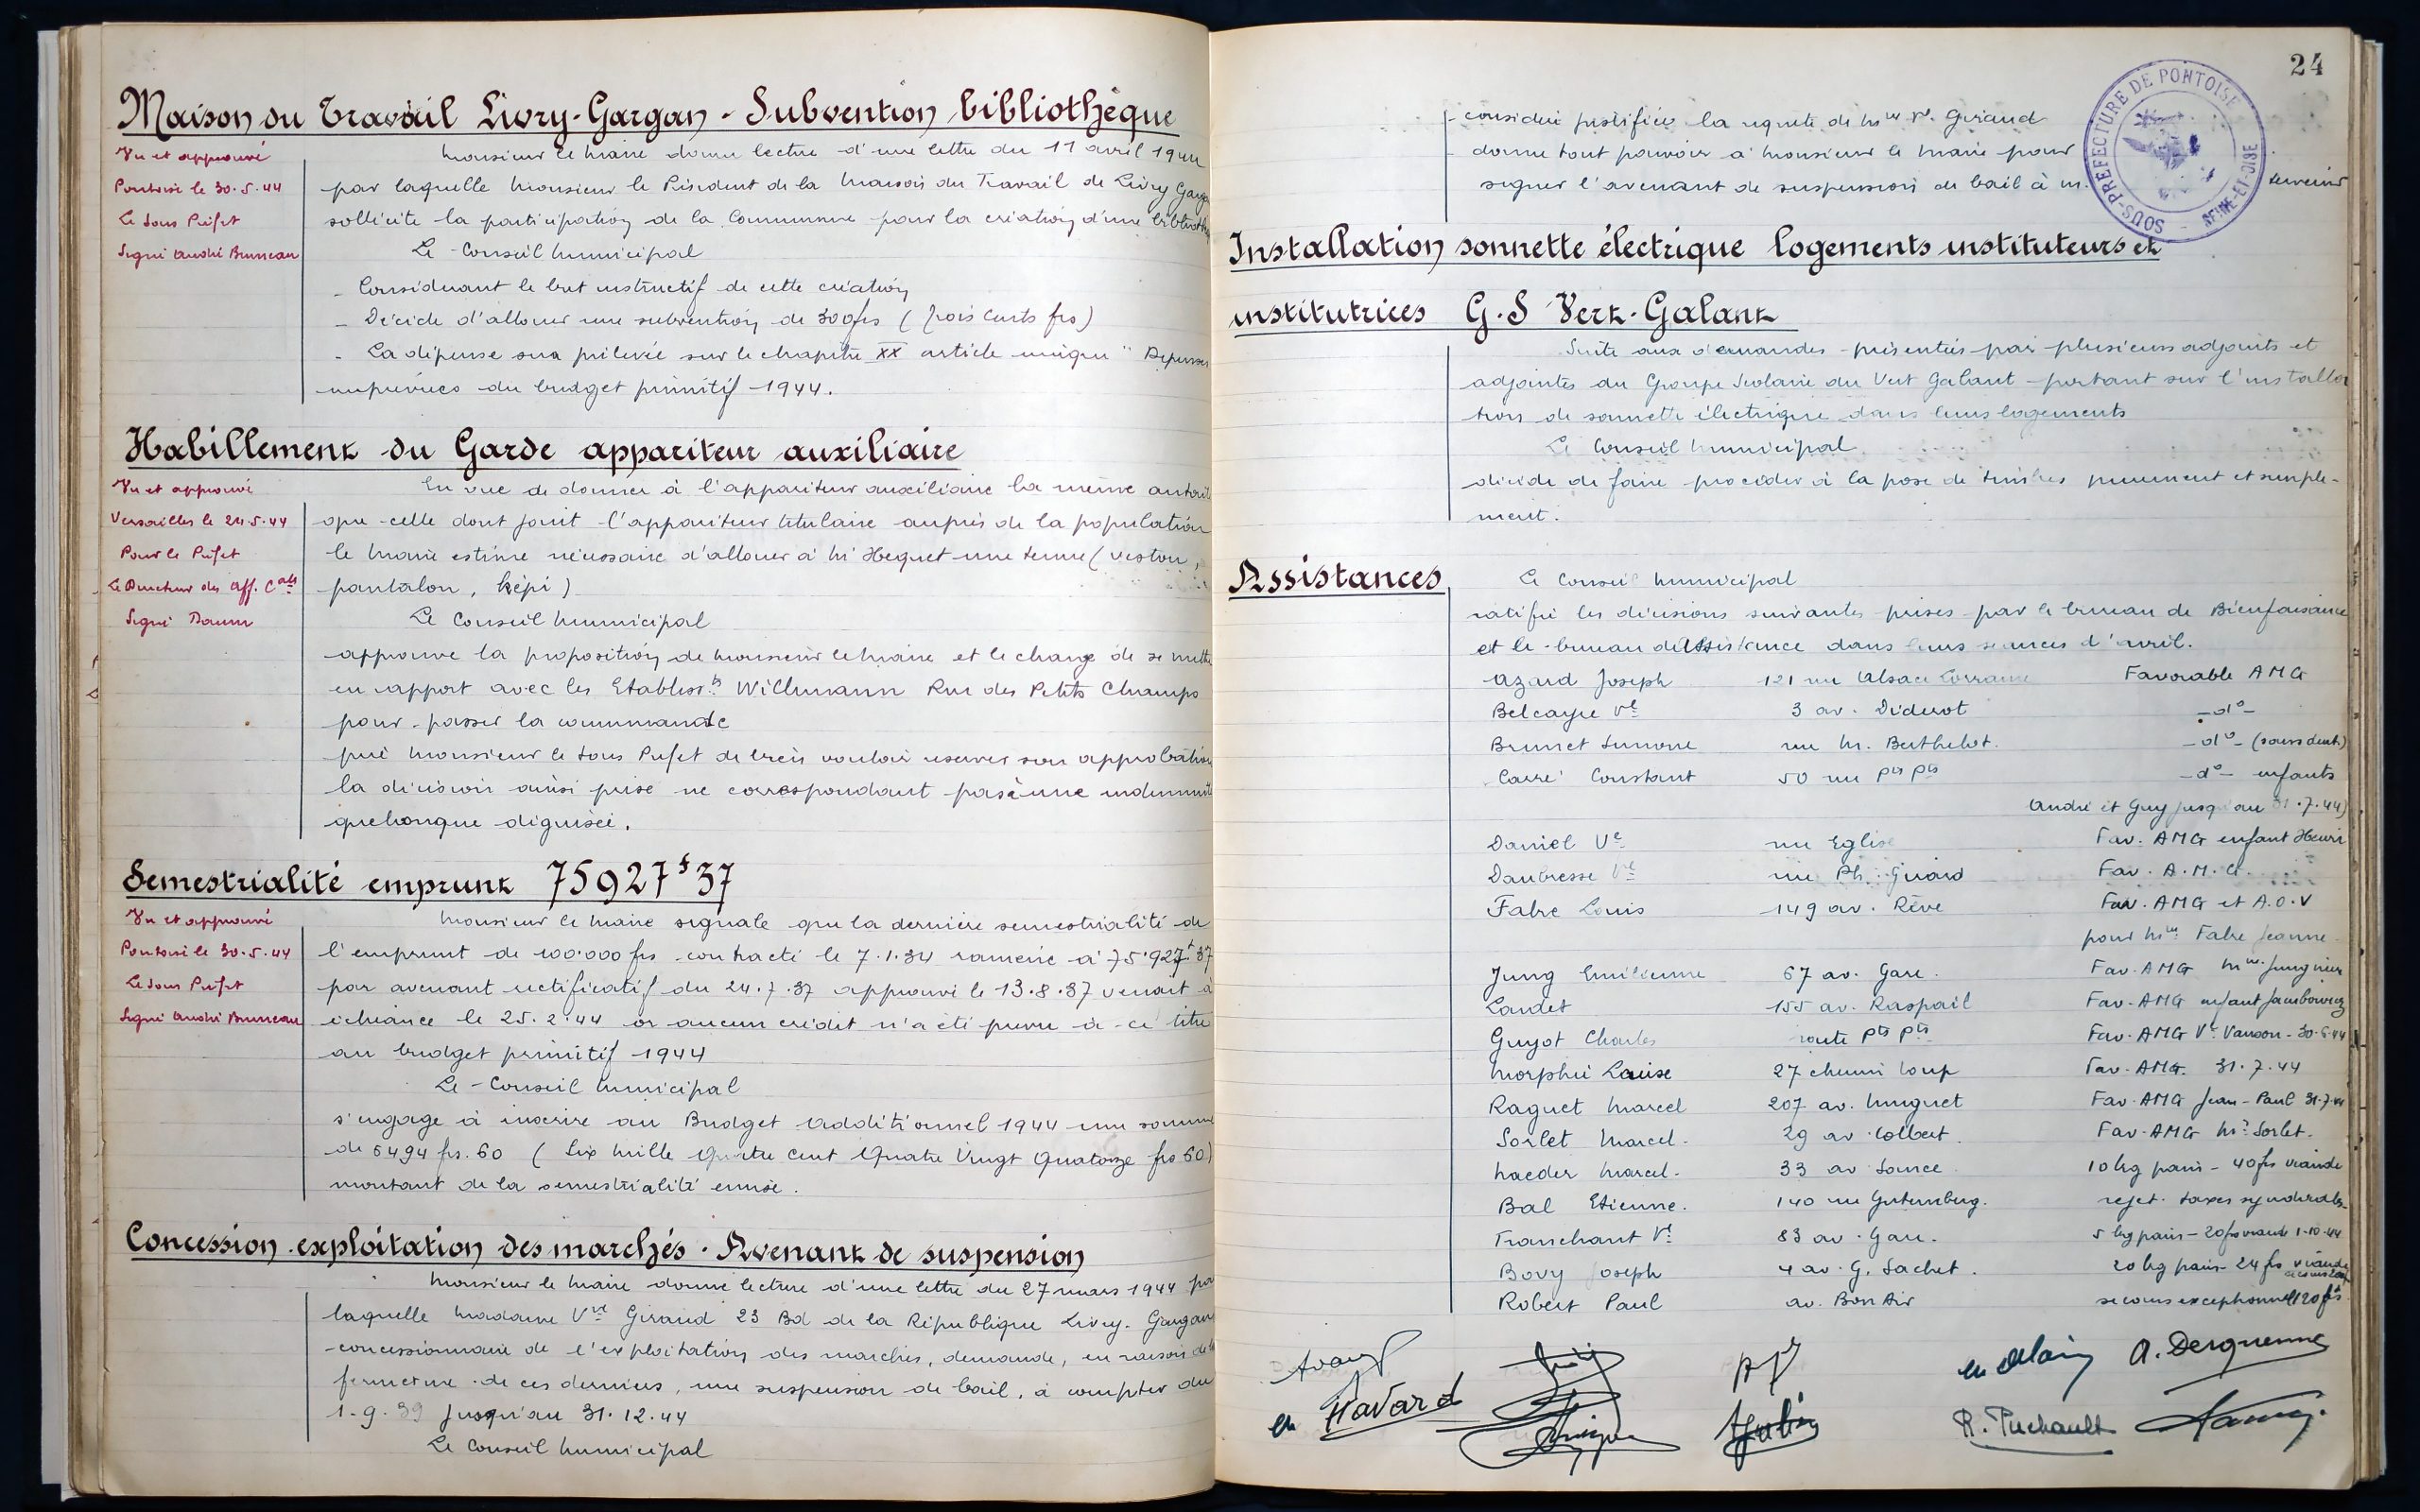 Maison du Travail Livry-Gargan - Subvention bibliothèque
Vu et approuvé
Pontoise le 30.5.44
Le Sous Préfet
Signé André Bruneau
Monsieur le Maire donne lecture d'une lettre du 11 avril 1944
par laquelle Monsieur le Président de la Maison du Travail de Livry Garga
sollicite la participation de la Commune pour la création d'une biblioth
Le Conseil Municipal
- Considérant le but instructif de cette création
- Décide d'allouer une subvention de 300frs (trois cents frs)
- La dépense sera prélevée sur le chapitre XX article unique " Dépenses
imprévues du budget primitif 1944.
Habillement du Garde appariteur auxiliaire
Vu et approuvé
Versailles le 24.5.44
Pour le Préfet
Le Directeur des Aff. Cales
Signé Daum
En vue de donner à l'appariteur auxiliaire la même autori
que celle dont jouit l'appariteur titulaire auprès de la population
le Maire estime nécessaire d'allouer à Mr Hequet une tenue (veston,
pantalon, képi)
Le Conseil Municipal
approuve la proposition de Monsieur le Maire et le charge de se mettre
en rapport avec les Establiss.ts Willmann Rue des Petits Champs
pour passer la commande
prie Monsieur le Sous Préfet de bien vouloir réserver son approbation
la décision ainsi prise ne correspondant pas à une indemnité
quelconque déguisée.
Semestrialité emprunt 75927f37
Vu et approuvé
Pontoise le 30.5.44
Le Sous Préfet
Signé André Bruneau
Monsieur le Maire signale que la dernière semestrialité de
l'emprunt de 100.000 frs contracté le 7.1.34 ramené à 75.927f37
par avenant rectificatif du 24.7.37 approuvé le 13.8.37 venait à
échéance le 25.2.44 or aucun crédit n'a été prévu à ce titre
au budget primitif 1944
Le Conseil Municipal
s'engage à inscrire au Budget additionnel 1944 une somme
de 6494 frs.60 (Six Mille Quatre Cent Quatre Vingt Quatorze frs 60)
montant de la semestrialité émise.
Concession exploitation des marchés. Avenant de suspension
Monsieur le Maire donne lecture d'une lettre du 27 mars 1944 pa
laquelle Madame Vve Giraud 23 Bd de la République Livry-Gargan
concessionnaire de l'exploitation des marchés, demande, en raison de la
fermeture de ces derniers, une suspension de bail, à compter du
1.9.39 jusqu'au 31.12.44
Le Conseil Municipal
24
SOUS-PREFECTURE DE PONTOISE
SEINE-ET-OISE
- considère justifiée la requête de Mme Ve Giraud
- donne tout pouvoir à Monsieur le Maire pour
signer l'avenant de suspension de bail à intervenir
Installation sonnette électrique logements instituteurs et
institutrices G.S Vert-Galant
Suite aux demandes présentées par plusieurs adjoints et
adjointes du Groupe Scolaire du Vert Galant portant sur l'installa
tion de sonnette électrique dans leurs logements
Le Conseil Municipal
décide de faire procéder à la pose de timbres purement et simple-
ment.
Assistances
Le Conseil Municipal
ratifie les décisions suivantes prises par le bureau de Bienfaisance
et le bureau d'Assistance dans leurs séances d'avril.
Azard Joseph 121 rue Alsace Lorraine Favorable AMG
Belcayre Ve 3 av. Diderot -do-
Brunet Simone rue M. Berthelot. -do- (soins dent.)
Carré Constant 50 rue Pts Pts -do- enfants
André et Guy jusqu'au 31.7.44)
Daniel Ve rue Eglise Fav. AMG enfant Henri
Daubresse Ve rue Ph. Guiard Fav. A.M.G.
Fabre Louis 149 av. Rêve Fav. AMG et A.O.V
pour Mme Fabre Jeanne
Jung Emilienne 67 av. Gare. Fav. AMG Mme Jung
Landet 155 av. Raspail Fav. AMG enfant
Guyot Charles route Pts Pts Fav. AMG Ve - 30.6.44
Morphie Louise 27 chemin Loup Fav. AMG. 31.7.44
Raguet Marcel 207 av. Huguet Fav. AMG Jean-Paul 31.7.44
Sorlet Marcel. 29 av Colbert. Fav. AMG Mr Sorlet.
Haeder Marcel. 33 av Sance 10kg pain - 40frs viande
Bal Etienne. 140 rue Gutemberg. rejet. taxes syndicales
Tranchant Ve 83 av. Gare. 5 kg pain - 20frs viande 1-10-44
Bovy Joseph 4 av. G. Sachet. 20kg pain - 24 frs viande
Robert Paul av. Bon Air secours exceptionnel 120frs
Havard
A. Derquenne
R. Puchault